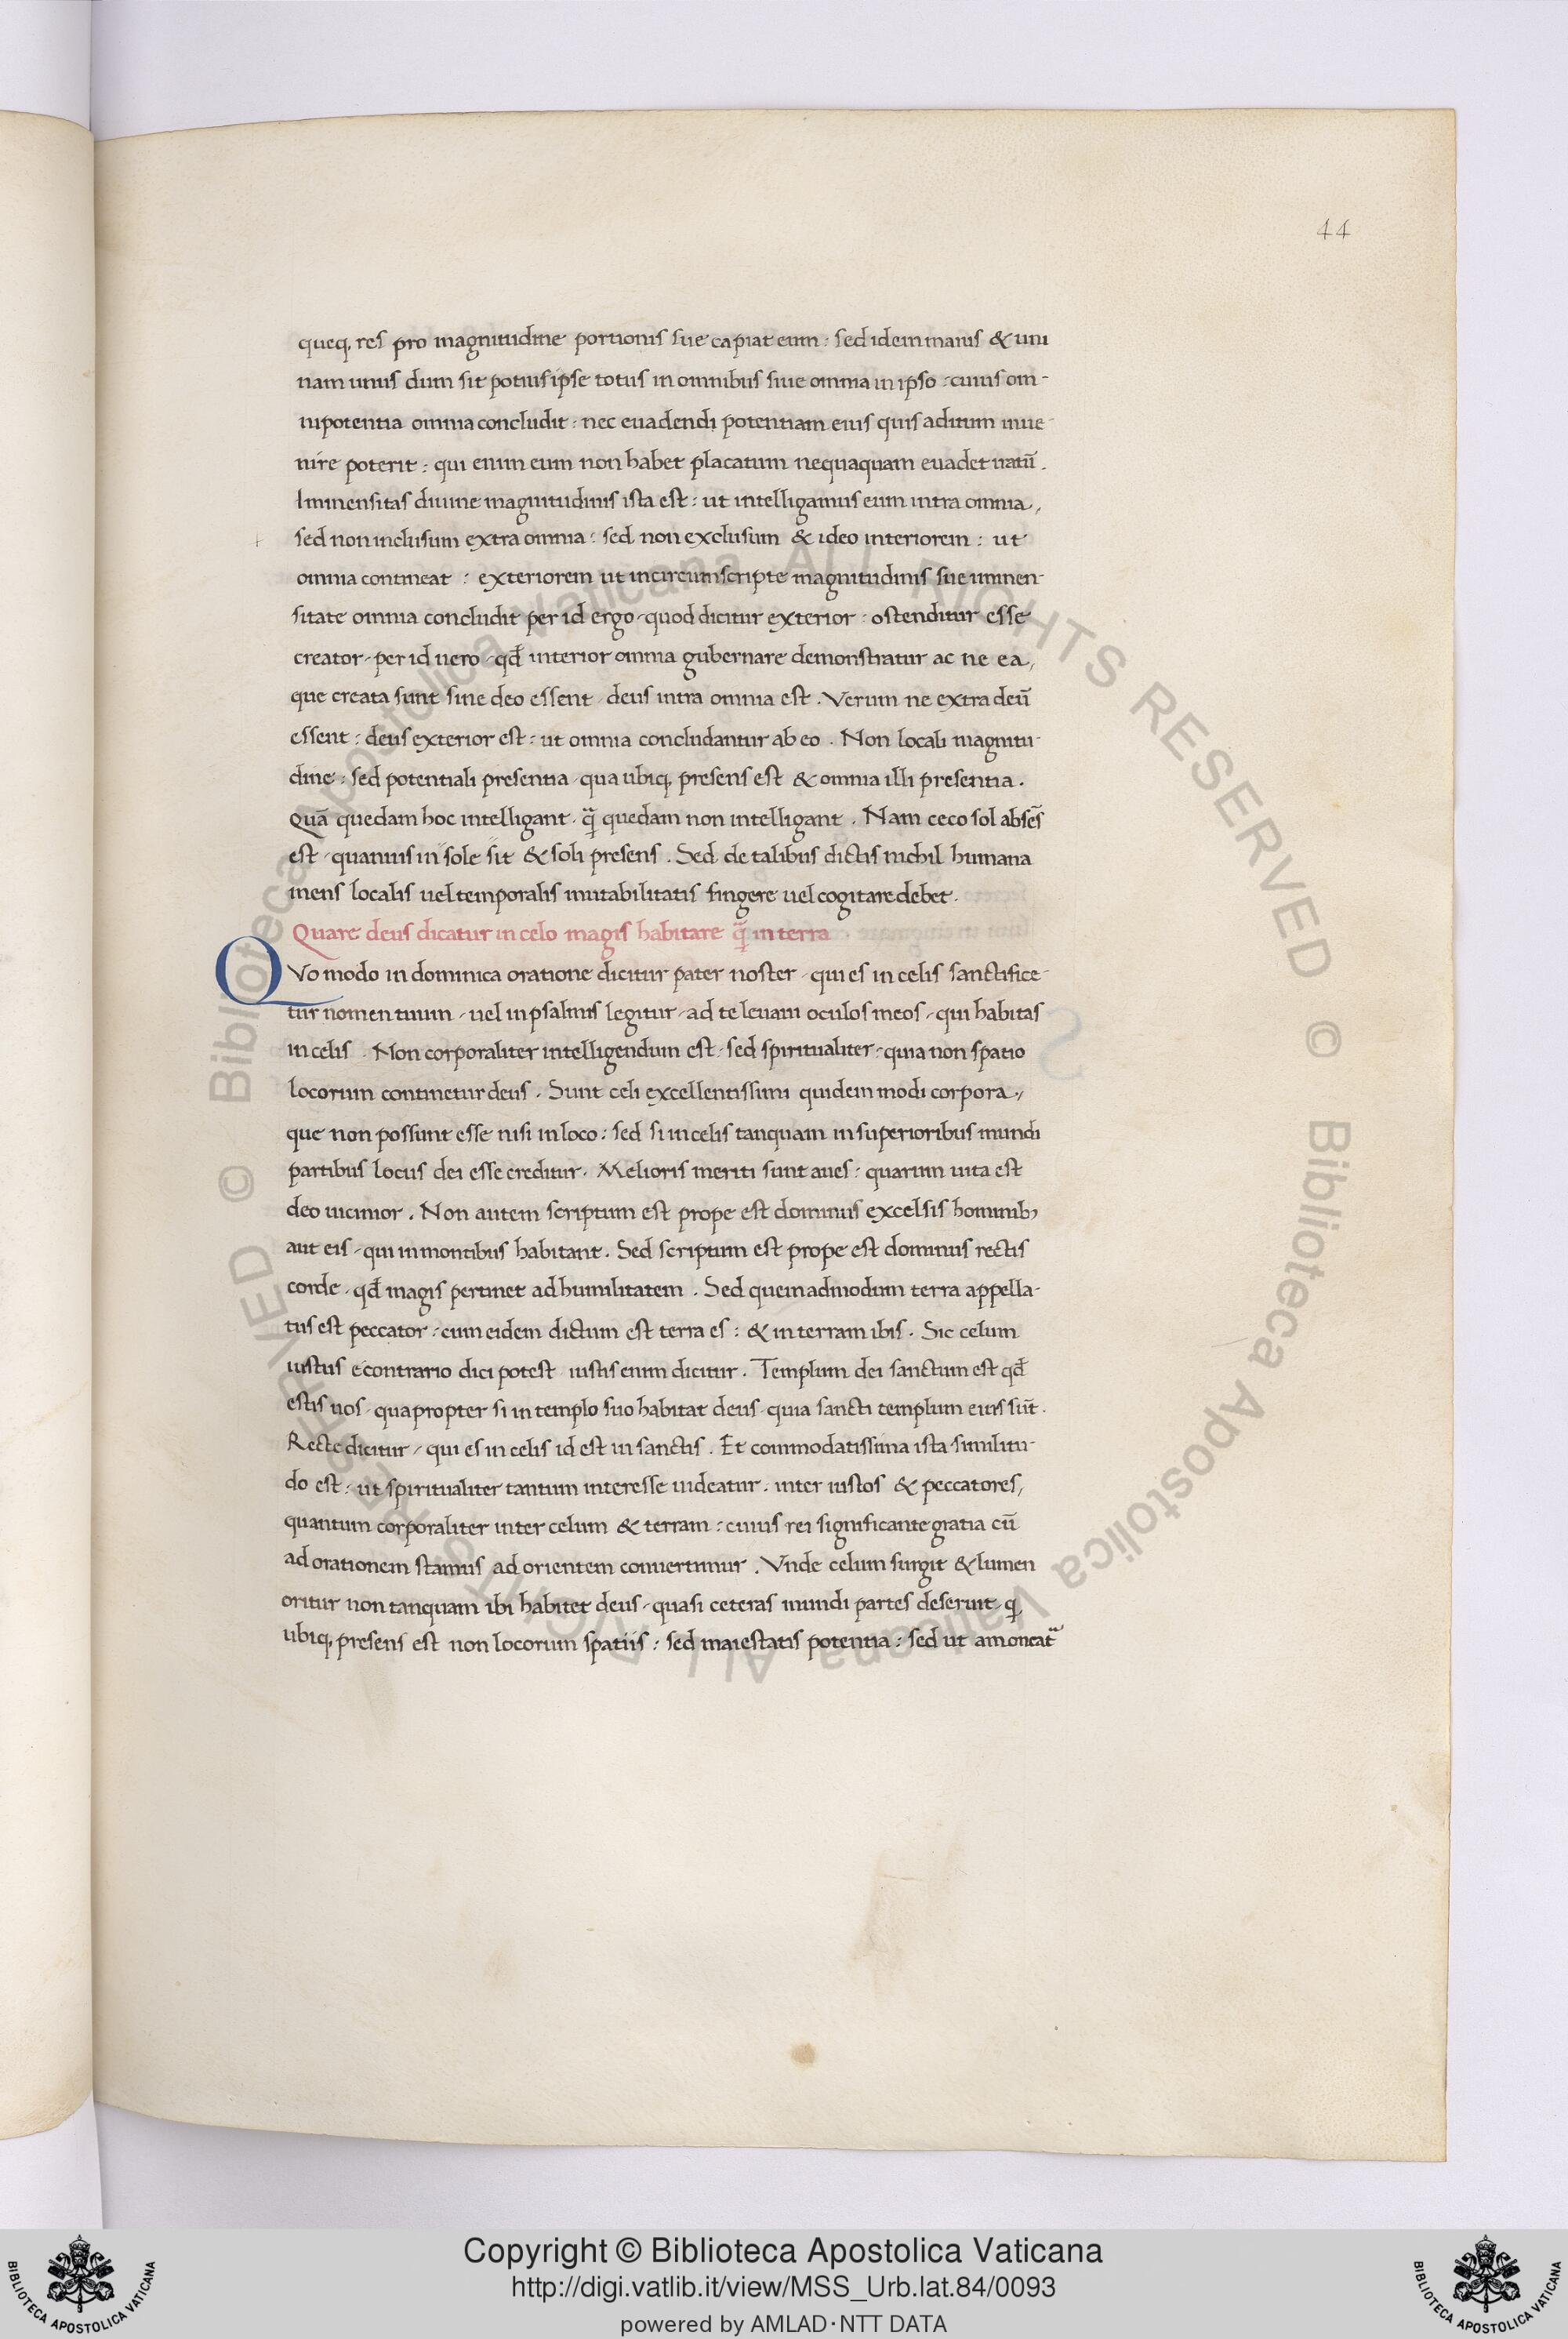 44
queq, res pro magnitudine portionis sue capiat eum : sed idem manis & uni
nam unus dum sit potius ipse totus in omnibus siue omnia in ipso : cuius om-
nipotentia omnia concludit : nec euadendi potentiam eius quis aditum inue-
nire poterit : qui enim eum non habet placatum nequaquam euadet natū .
Immensitas diuine magnitudinis ista est : ut intelligamus eum intra omnia,
sed non inclusum extra omnia : sed non exclusum & ideo interiorem : ut
omnia contineat : exteriorem ut incircumscripte magnitudinis sue inmen-
sitate omnia concludit per id ergo quod dicitur exterior : ostenditur esse
creator per id uero qđ interior omnia gubernare demonstratur ac ne ea,
que creata sunt sine deo essent deus intra omnia est . Verum ne extra deū
essent : deus exterior est : ut omnia concludantur ab eo . Non locali magnitu-
dine : sed potentiali presentia qua ubiq, presens est & omnia illi presentia .
Quā quedam hoc intelligant q̄ quedam non intelligant . Nam ceco sol absēs
est quamuis in sole sit & soli presens . Sed de talibus dictis nichil humana
mens localis uel temporalis mutabilitatis fingere uel cogitare debet .
Quare deus dicatur in celo magis habitare q̄ in terra
QVo modo in dominica oratione dicitur pater noster qui es in celis sanctifice-
tur nomen tuum uel in psalmis legitur ad te leuaui oculos meos qui habitas
in celis . Non corporaliter intelligendum est sed spiritualiter quia non spatio
locorum continetur deus . Sunt celi excellentissimi quidem modi corpora,
que non possunt esse nisi in loco : sed si in celis tanquam in superioribus mundi
partibus locus dei esse creditur . Melioris meriti sunt aues : quarum uita est
deo uicinior . Non autem scriptum est prope est dominus excelsis hominib;
aut eis qui in montibus habitant . Sed scriptum est prope est dominus rectis
corde qđ magis pertinet ad humilitatem . Sed quemadmodum terra appella-
tus est peccator : cum eidem dictum est terra es : & in terram ibis . Sic celum
iustus e contrario dici potest iustis enim dicitur . Templum dei sanctum est qđ
estis uos quapropter si in templo suo habitat deus quia sancti templum eius sūt .
Recte dicitur qui es in celis id est in sanctis . Et commodatissima ista similitu-
do est : ut spiritualiter tantum interesse uideatur inter iustos & peccatores,
quantum corporaliter inter celum & terram : cuius rei significante gratia cū
ad orationem stamus ad orientem conuertimur . Vnde celum surgit & lumen
oritur non tanquam ibi habitet deus quasi ceteras mundi partes deserint q,
ubiq, presens est non locorum spatiis : sed maiestatis potentia : sed ut amoneatr̄
Copyright © Biblioteca Apostolica Vaticana
http://digi.vatlib.it/view/MSS_Urb.lat.84/0093
powered by AMLAD·NTT DATA
BIBLIOTECA APOSTOLICA VATICANA
BIBLIOTECA APOSTOLICA VATICANA
© Biblioteca Apostolica Vaticana ALL RIGHTS RESERVED
© Biblioteca Apostolica Vaticana ALL RIGHTS RESERVED